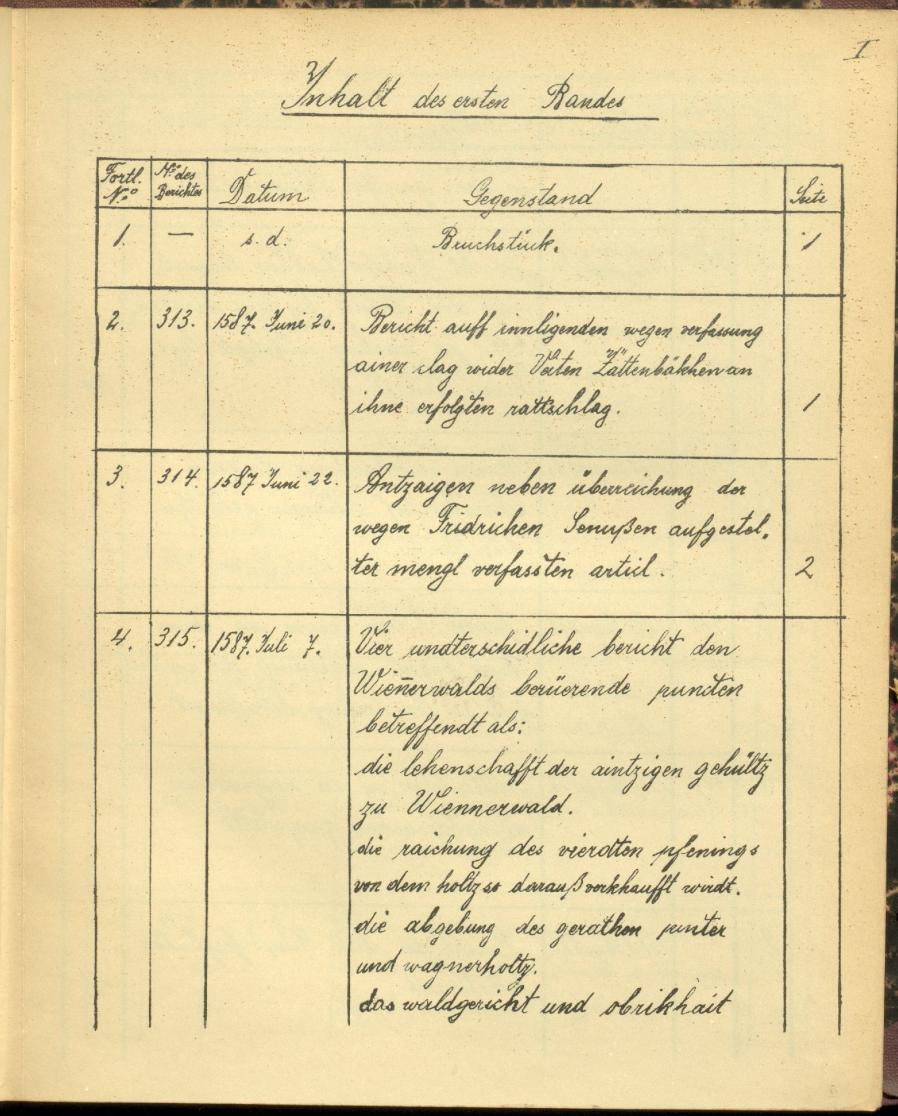 I
Inhalt des ersten Bandes
Fortl. No. No. des Berichtes Datum Gegenstand Seite
1. — s. d. Bruchstück. 1
2. 313. 1587. Juni 20. Bericht auff innligenden wegen verfassung
ainer clag wider Veiten Zättenbäkhen an
ihne erfolgten rattschlag. 1
3. 314. 1587 Juni 22. Antzaigen neben überreichung der
wegen Fridrichen Senußen aufgestel-
ter mengl verfassten articl. 2
4. 315. 1587. Juli 7. Vier undterschidliche bericht den
Wien̄erwalds berüerende puncten
betreffendt als:
die lehenschafft der aintzigen gehültz
zu Wiennerwald.
die raichung des vierdten pfenings
von dem holtz so darauß verkhaufft wirdt.
die abgebung des gerathen pinter
und wagnerholtz.
das waldgericht und obrikhait